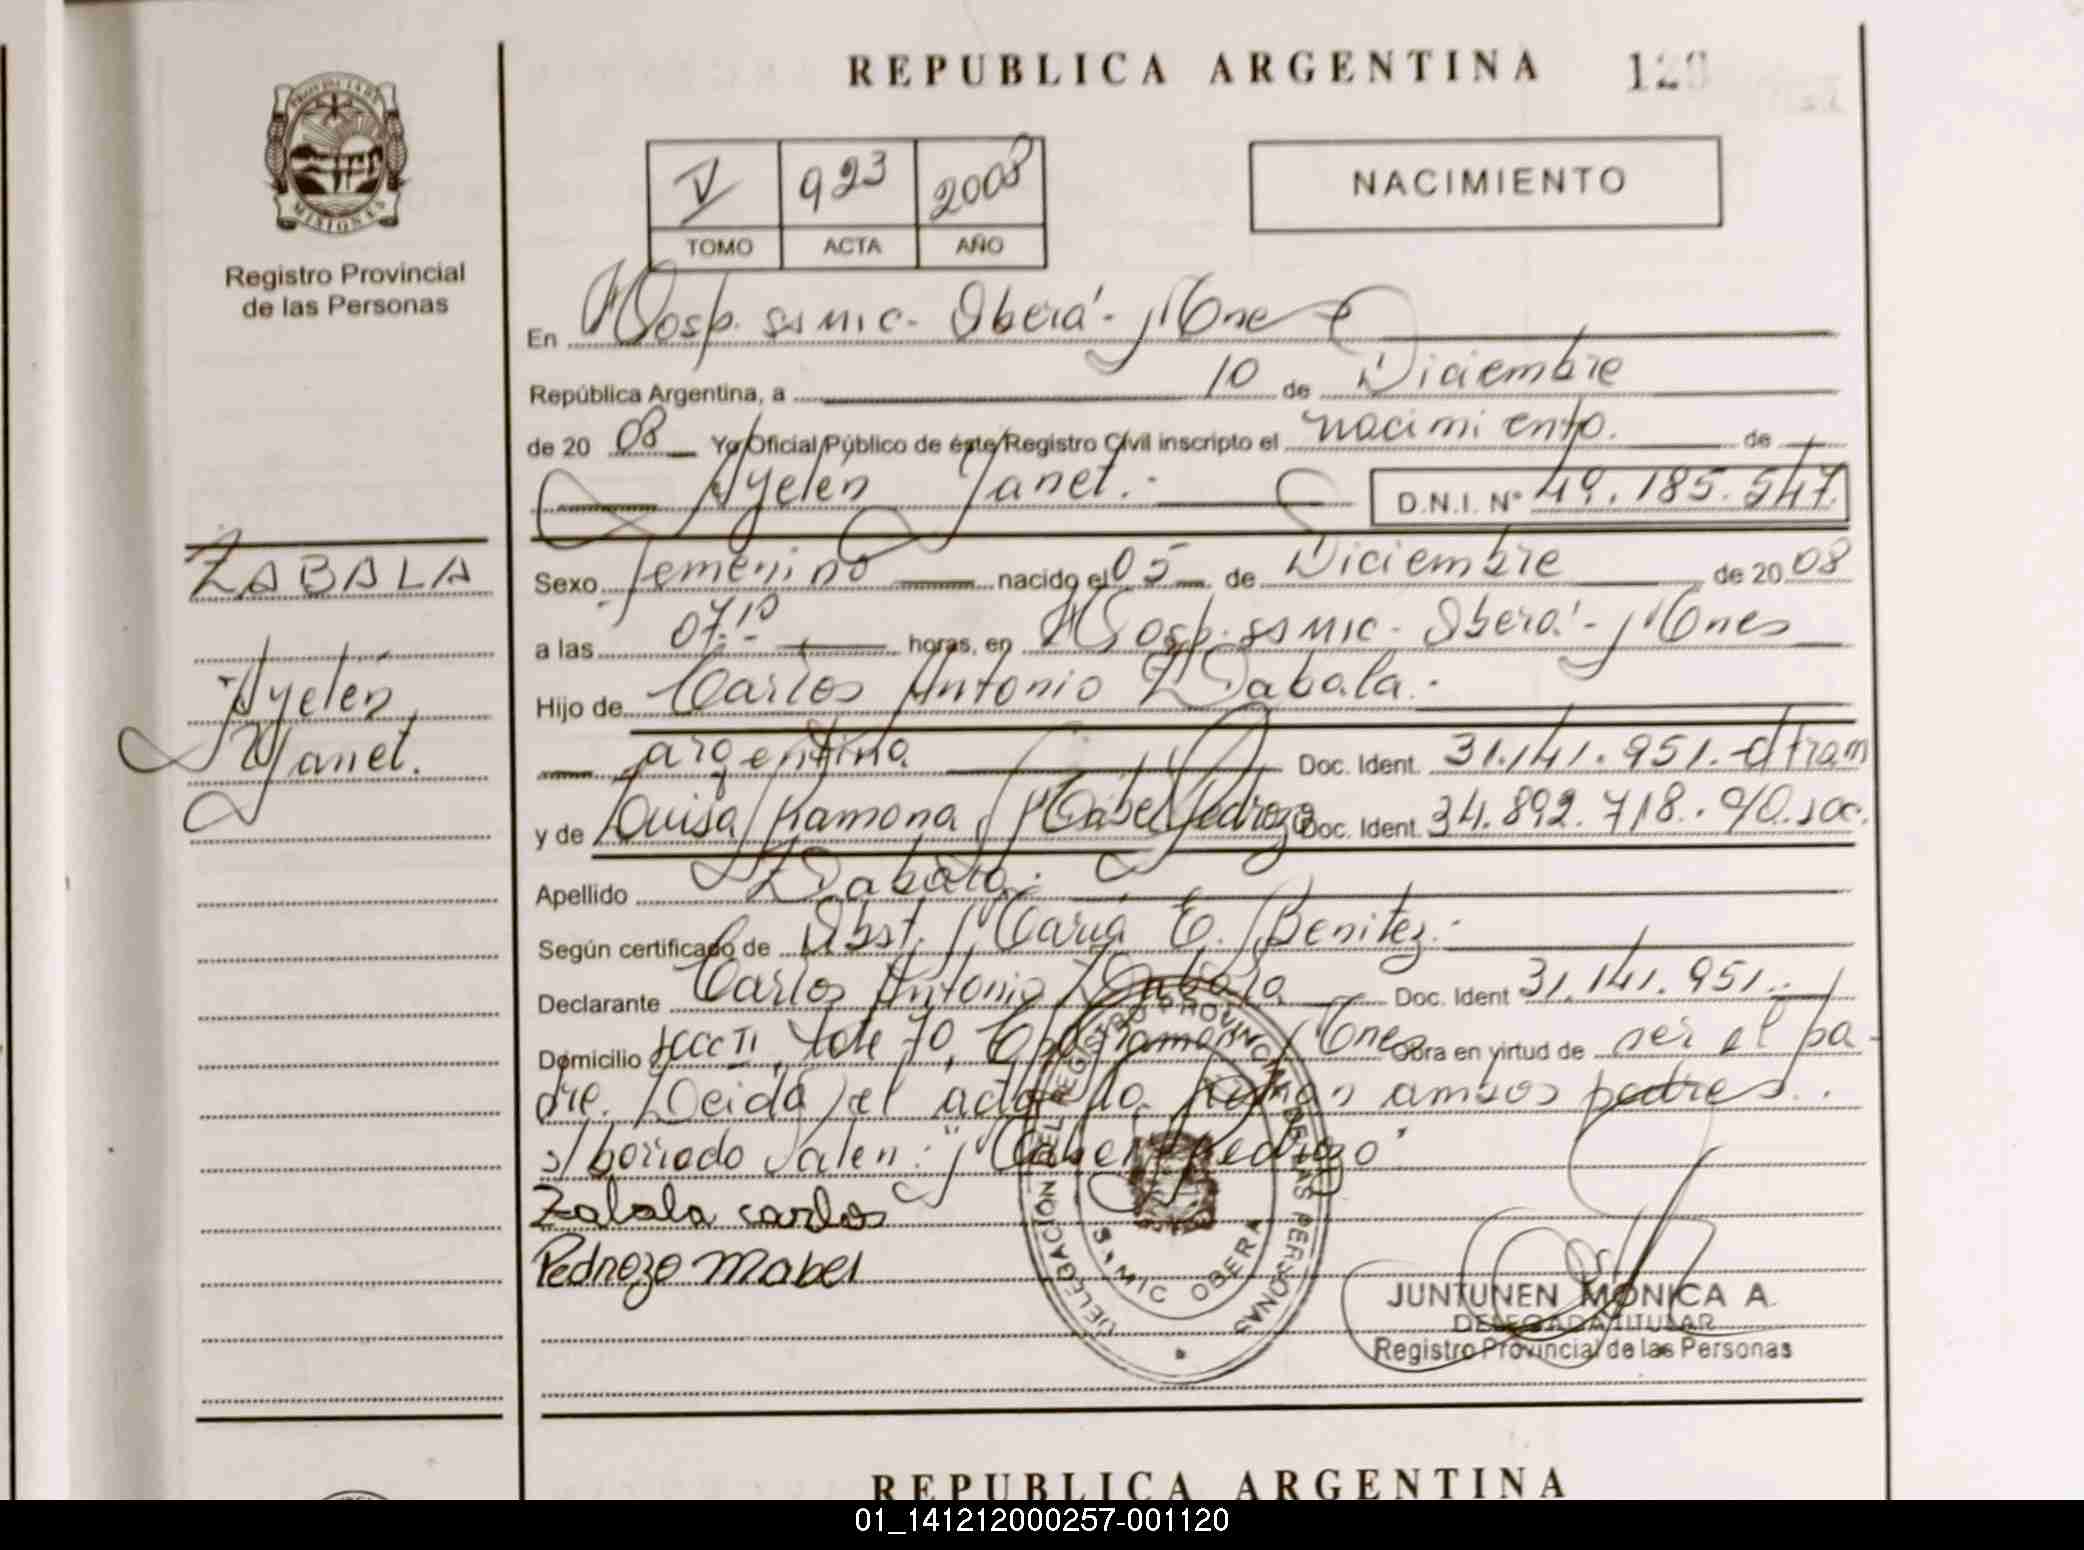 REPUBLICA ARGENTINA
PROVINCIA DE MISIONES
Registro Provincial
de las Personas
V 923 2008
TOMO ACTA AÑO
NACIMIENTO
En Hosp. ssmic - Oberá - Mnes
República Argentina, a 10 de Diciembre
de 20 08 Yo Oficial Público de éste Registro Civil inscripto el nacimiento. de
Ayelén Yanet.- D.N.I. Nº 49.185.547
ZABALA
Ayelén
Yanet.
Sexo femenino nacido el 05 de Diciembre de 20 08
a las 07.10 horas, en Hosp. ssmic - Oberá - Mnes
Hijo de Carlos Antonio Zabala.-
argentina Doc. Ident. 31.141.951.-
y de Luisa Ramona Mabel Pedrozo Doc. Ident. 34.892.718.-
Apellido Zabala.-
Según certificado de Obst. María E. Benitez.-
Declarante Carlos Antonio Zabala Doc. Ident 31.141.951.-
Domicilio Lote 70, Ramón Mnes Obra en virtud de ser el pa-
dre. Leida el acta la firman ambos padres.
s/borrado Valen: "Mabel Pedrozo"
Zabala carlos
Pedrozo Mabel
DELEGACION DEL REGISTRO PROVINCIAL DE LAS PERSONAS
SAMIC OBERA
JUNTUNEN MONICA A.
DELEGADA TITULAR
Registro Provincial de las Personas
REPUBLICA ARGENTINA
01_141212000257-001120